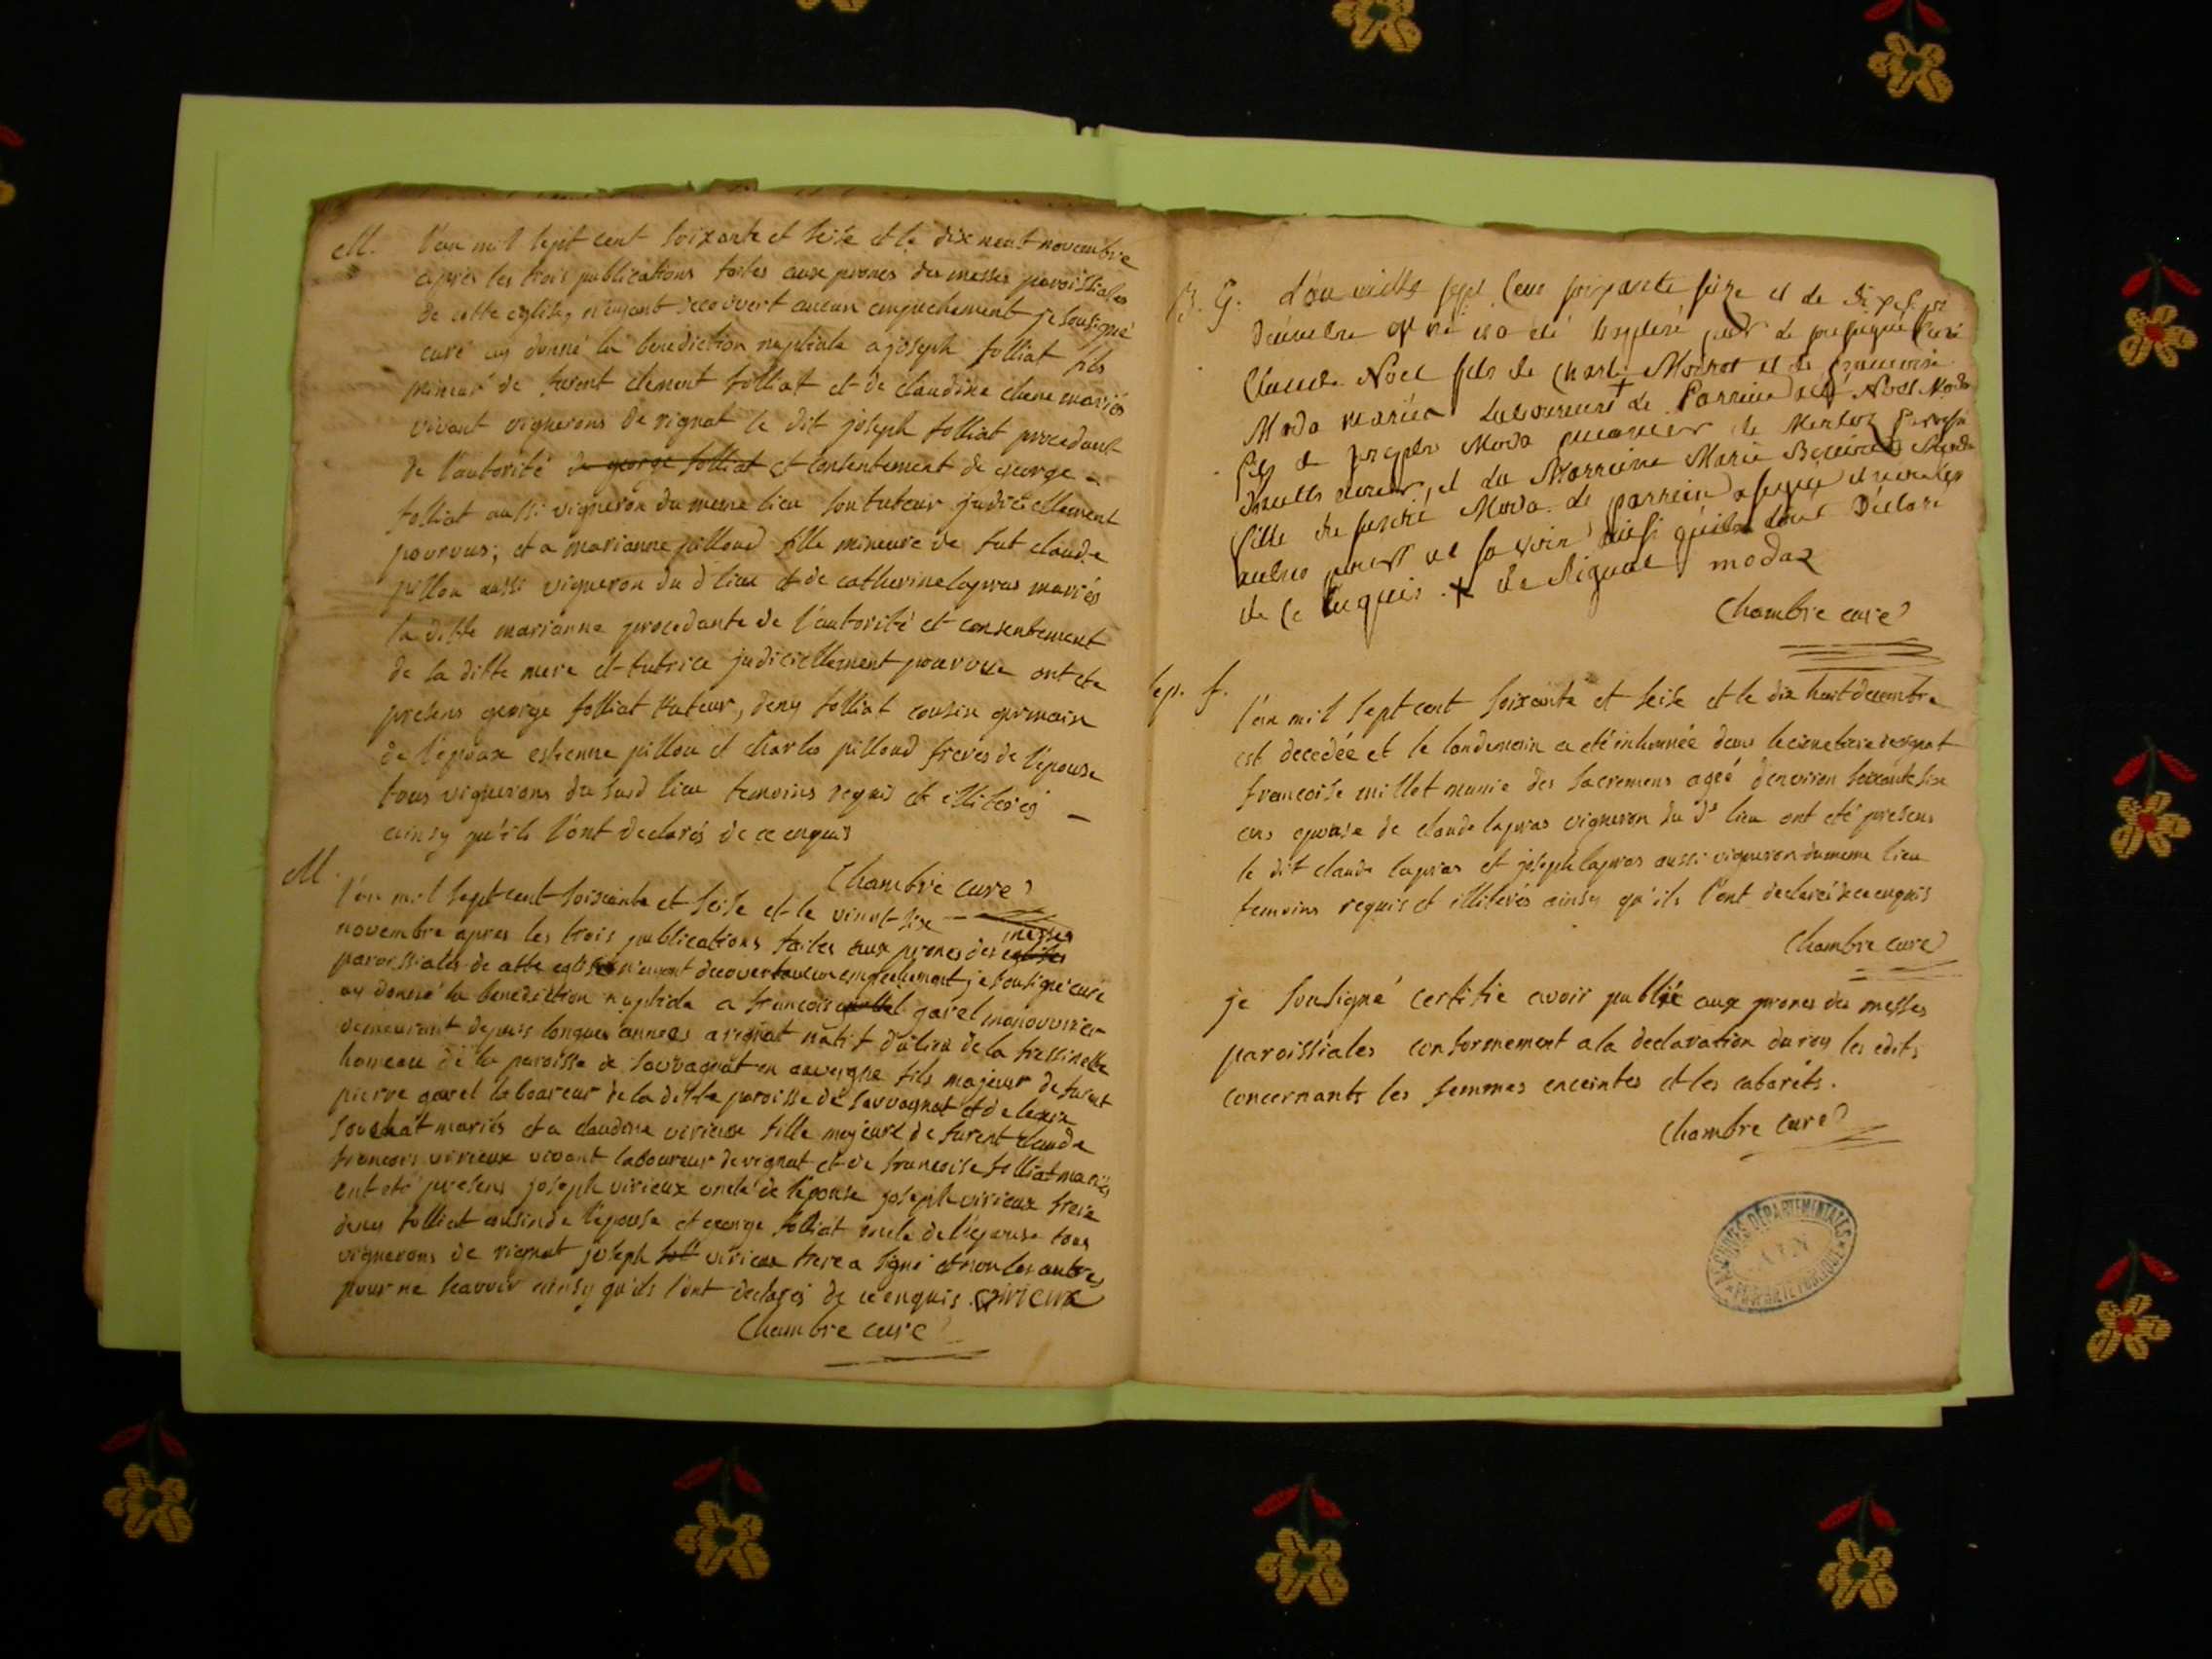 M. l'an mil sept cent soixante et seise et le dix neuf novembre
apres les trois publications faites aux prones des messes paroissiales
de cette eglise, n'ayant decouvert aucun empechement je sousigné
curé ay donné la benediction nuptiale a joseph folliat fils
mineur de furent clement folliat et de claudine chene mariés
vivant vignerons de rignat le dit joseph folliat procedant
de l'autorité de george folliat et consentement de george -
folliat aussi vigneron du meme lieu son tuteur judiciellement
pourvus; et a marianne pilloud fille mineure de fut claude
pillou aussi vigneron du d lieu et de catherine lapras mariés
la ditte marianne procedante de l'autorité et consentement
de la ditte mere et tutrice judiciellement pourvue ont ete
presens george folliat tuteur, deny folliat cousin germain
de l'epoux estienne pillou et charles pilloud freres de l'epouse
tous vignerons du susd lieu temoins requis et illiterés -
ainsy qu'ils l'ont declarés de ce enquis
Chambre curé
M. l'an mil sept cent soixante et seise et le vingt-six -
novembre apres les trois publications faites aux prones des eglises messes
paroissiales de cette eglise n'ayant decouvert aucun empechement je sousigné curé
ay donné la benediction nuptiale a francois garel manouvrier
demeurant depuis longues années a rignat natif du lieu de la fressinette
hameau de la paroisse de sauvagnat en auvergne fils majeur de furent
pierre garel laboureur de la ditte paroisse de sauvagnat et de
souchat mariés et a claudine virieux fille majeure de furent claude
francois virieux vivant laboureur de rignat et de francoise folliat mariés
ont eté presens joseph virieux oncle de l'epouse joseph virieux frere
deny folliat cousin de l'epouse et george folliat oncle de l'epouse tous
vignerons de rignat joseph foll virieux frere a signé et non les autres
pour ne scavoir ainsy qu'ils l'ont declarés de ce enquis. virieux
Chambre curé
B. G. L'an mille sept cent soixante seize et le dix sept
decembre est né et a eté baptisé par le soussigné curé
Claude Noel fils de Charle Moirot et de francoise
Moda mariés laboureurs + le Parrein a eté Noel Moda
fils de joseph Moda de paroisse
et la Marreine Marie Moda
fille de Moda. le parrein a signé et non les
autres pour ne savoir ainsi qu'ils l'ont Déclaré
de ce enquis. + de Rignat modaz
Chambre curé
sep. f. l'an mil sept cent soixante et seise et le dix huit decembre
est decedée et le landemain a eté inhumée dans le cimetiere de rignat
francoise millet munie des sacremens ageé d'environ soixante six
ans epouse de claude lapras vigneron du dt lieu ont eté presens
le dit claude lapras et joseph lapras aussi vigneron du meme lieu
temoins requis et illiterés ainsy qu'ils l'ont declaré de ce enquis
Chambre curé
je sousigné certifie avoir publié aux prones des messes
paroissiales conformement a la declaration du roy les edits
concernants les femmes enceintes et les cabarets.
Chambre curé
ARCHIVES DÉPARTEMENTALES
AIN
PROPRIÉTÉ PUBLIQUE